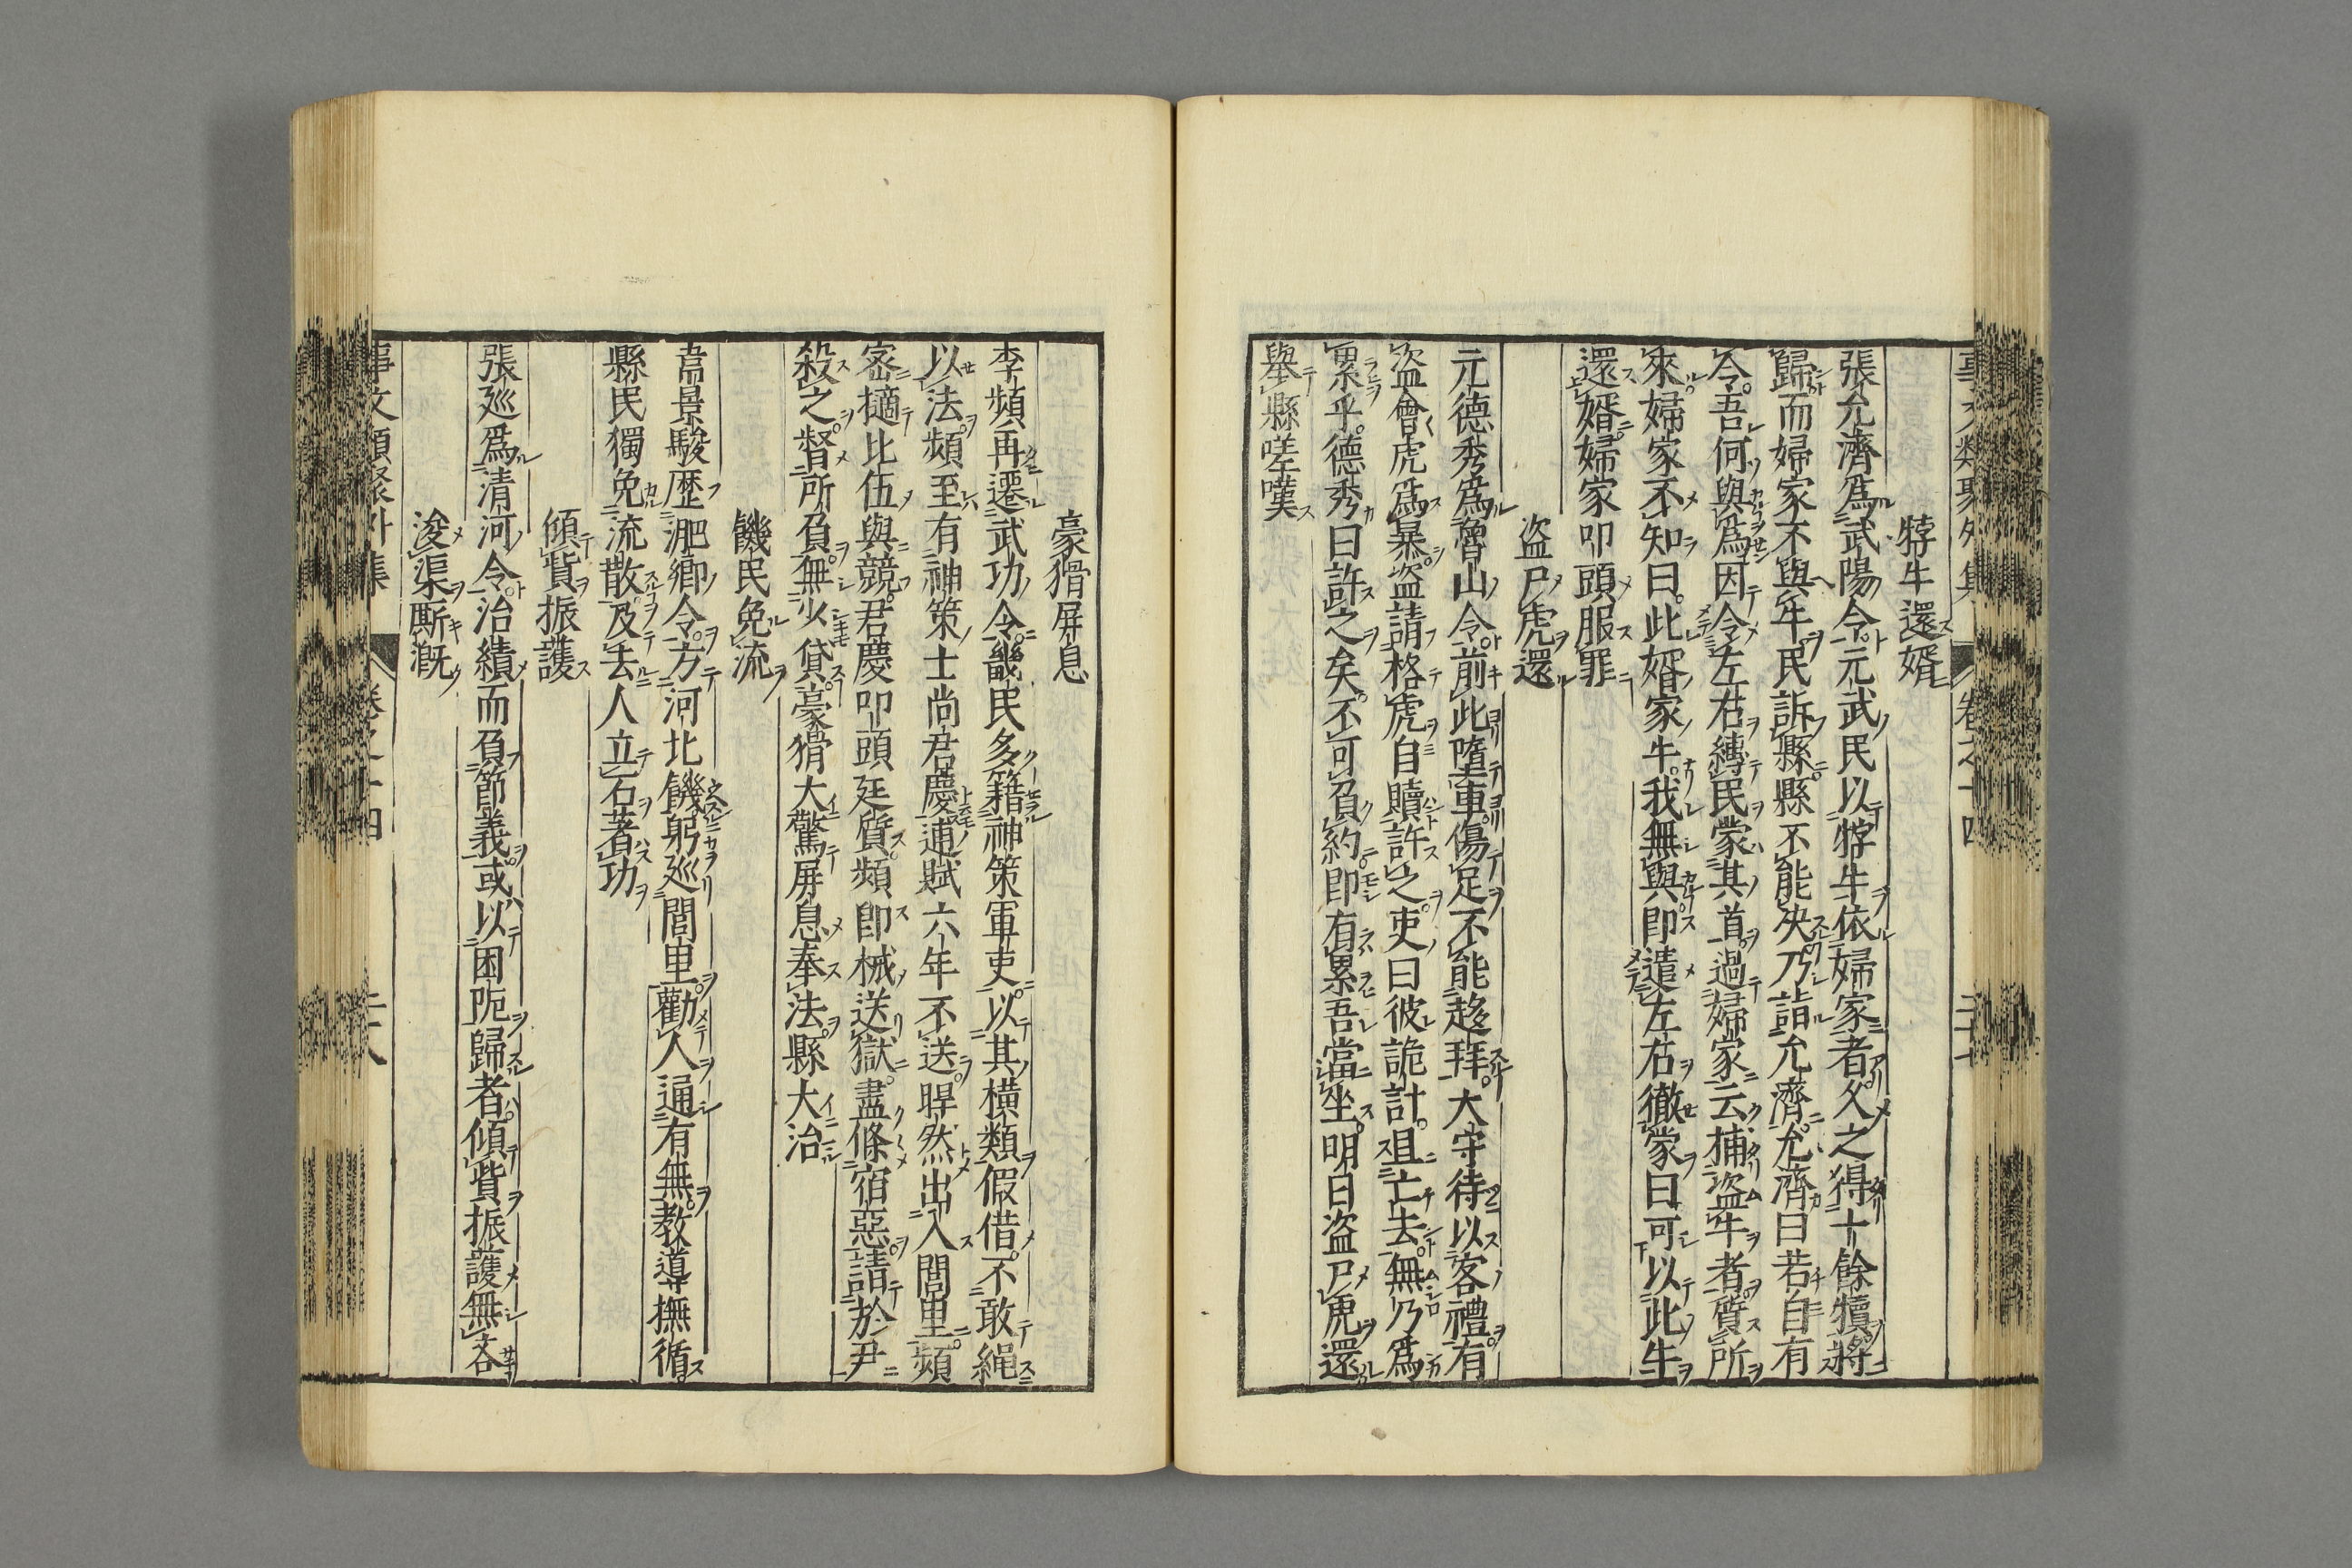 牸牛還婿
張允濟爲武陽令元武民以牸牛依婦家者久之得十餘犢將
歸而婦家不與牛民訴縣縣不能决乃詣允濟允濟曰若自有
令吾何與爲因令左右縛民蒙其首過婦家云捕盜牛者質所
來婦家不知曰此婿家牛我無與即遣左右徹蒙曰可以此牛
還婿婦家叩頭服罪
盜尸虎還
元德秀爲魯山令前此墮車傷足不能趍拜大守待以客禮有
盜會虎爲暴盜請格虎自贖許之吏曰彼詭計且亡去無乃爲
累乎德秀曰許之矣不可負約即有累吾當坐明日盜尸虎還
舉縣嗟嘆
豪猾屏息
李頻再遷武功令畿民多籍神策軍吏以其橫類假借不敢繩
以法頻至有神策士尚君慶逋賦六年不送睅然出入閭里頻
密擿比伍與競君慶叩頭廷質頻即械送獄盡條宿惡請於尹
殺之督所負無少貸豪猾大驚屏息奉法縣大治
饑民免流
韋景駿歷淝鄉令方河北饑躬巡閭里勸人通有無教導撫循
縣民獨免流散及去人立石著功
傾貲振護
張巡爲清河令治績而負節義或以困阨歸者傾貲振護無吝
浚渠厮漑
事文類聚外集
卷之十四
二十八